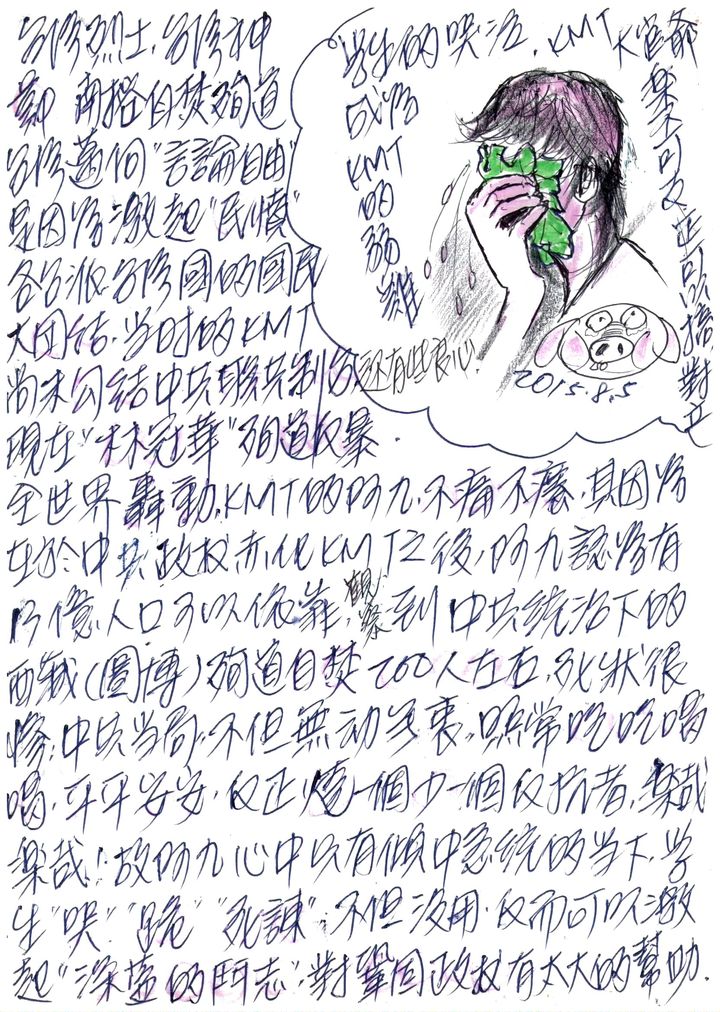 台灣烈士,台灣神
南榕自焚殉道
台灣邁向"言論自由"
是因為激起"民憤"
各台派.台灣國的國民
大团结.当时的KMT
尚未勾結中共聯共制台,还有些良心.
現在"林冠華"殉道反暴.
学生的哭泣,KMT大官爺
樂不可支正可以搞對立
成為KMT的
2015.8.5
全世界轟動,KMT的阿九,不痛不癢,其因為
在於中共政权赤化KMT之後,阿九認為有
13億人口可以依靠,觀察到中共統治下的
西藏(圖博)殉道自焚200人左右,死状很
慘,中共当局,不但無动於衷,照常吃吃喝
喝,平平安安,反正燒一個少一個反抗者,樂哉
樂哉!故阿九心中只有傾中急統的当下,学
生"哭""跪""死諫",不但没用,反而可以激
起"深藍的鬥志",對鞏固政权有太大的幫助.